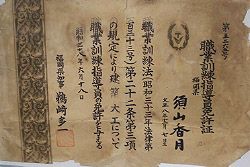 職業訓練指導員免許証
福岡県
須山香月
職業訓練法(昭和三十三年法律第
百三十三号)第二十二条第三項
の規定により建築大工について
職業訓練指導員の免許を与える
福岡県知事 鵜崎多一